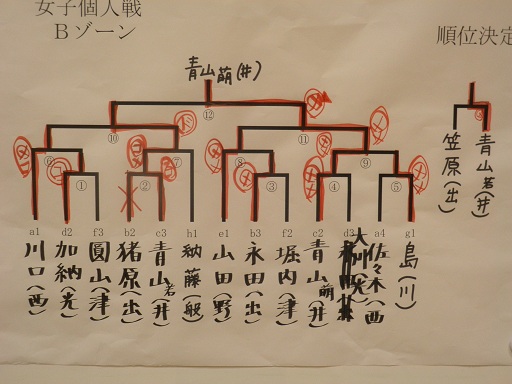 女子個人戦
Bゾーン
順位決定
青山萌(井)
⑫
⑩
⑪
⑥
⑦
⑧
⑨
①
②
③
④
⑤
a1 d2 f3 b2 c3 h1 e1 b3 f2 c2 d3 a4 g1
川口(西)
加納(光)
圓山(津)
猪原(出)
青山若(井)
納藤(般)
山田(野)
永田(出)
堀内(津)
青山萌(井)
佐々木(西)
島(川)
笠原(出)
青山若(井)